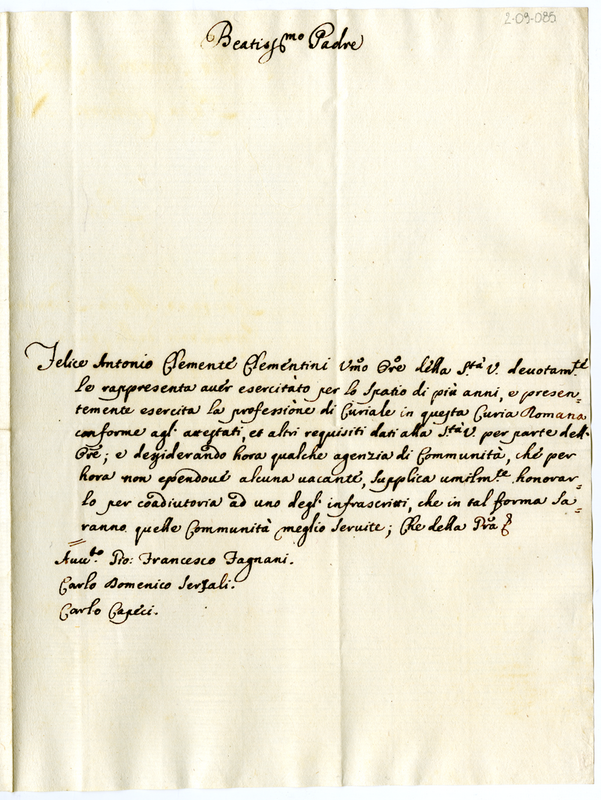 2-09-085
Beatiss.mo Padre
Felice Antonio Clemente Clementini Um̃o Or̃e della S.tà V. devotam.te
le rappresenta aver esercitato per lo spatio di più anni, e presen=
temente esercita la professione di Curiale in questa Curia Romana
conforme agl' attestati, et altri requisiti dati alla S.tà V. per parte dell'
Or̃e; e desiderando hora qualche agenzia di Communità, che per
hora non essendoue alcuna vacante, supplica umilm.te honorar=
lo per coadiutoria ad uno degl' infrascritti, che in tal forma sa=
ranno quelle Communità meglio servite; Che della Grã
Auu.to Gio: Francesco Fagnani.
Carlo Domenico Sersali.
Carlo Capeci.